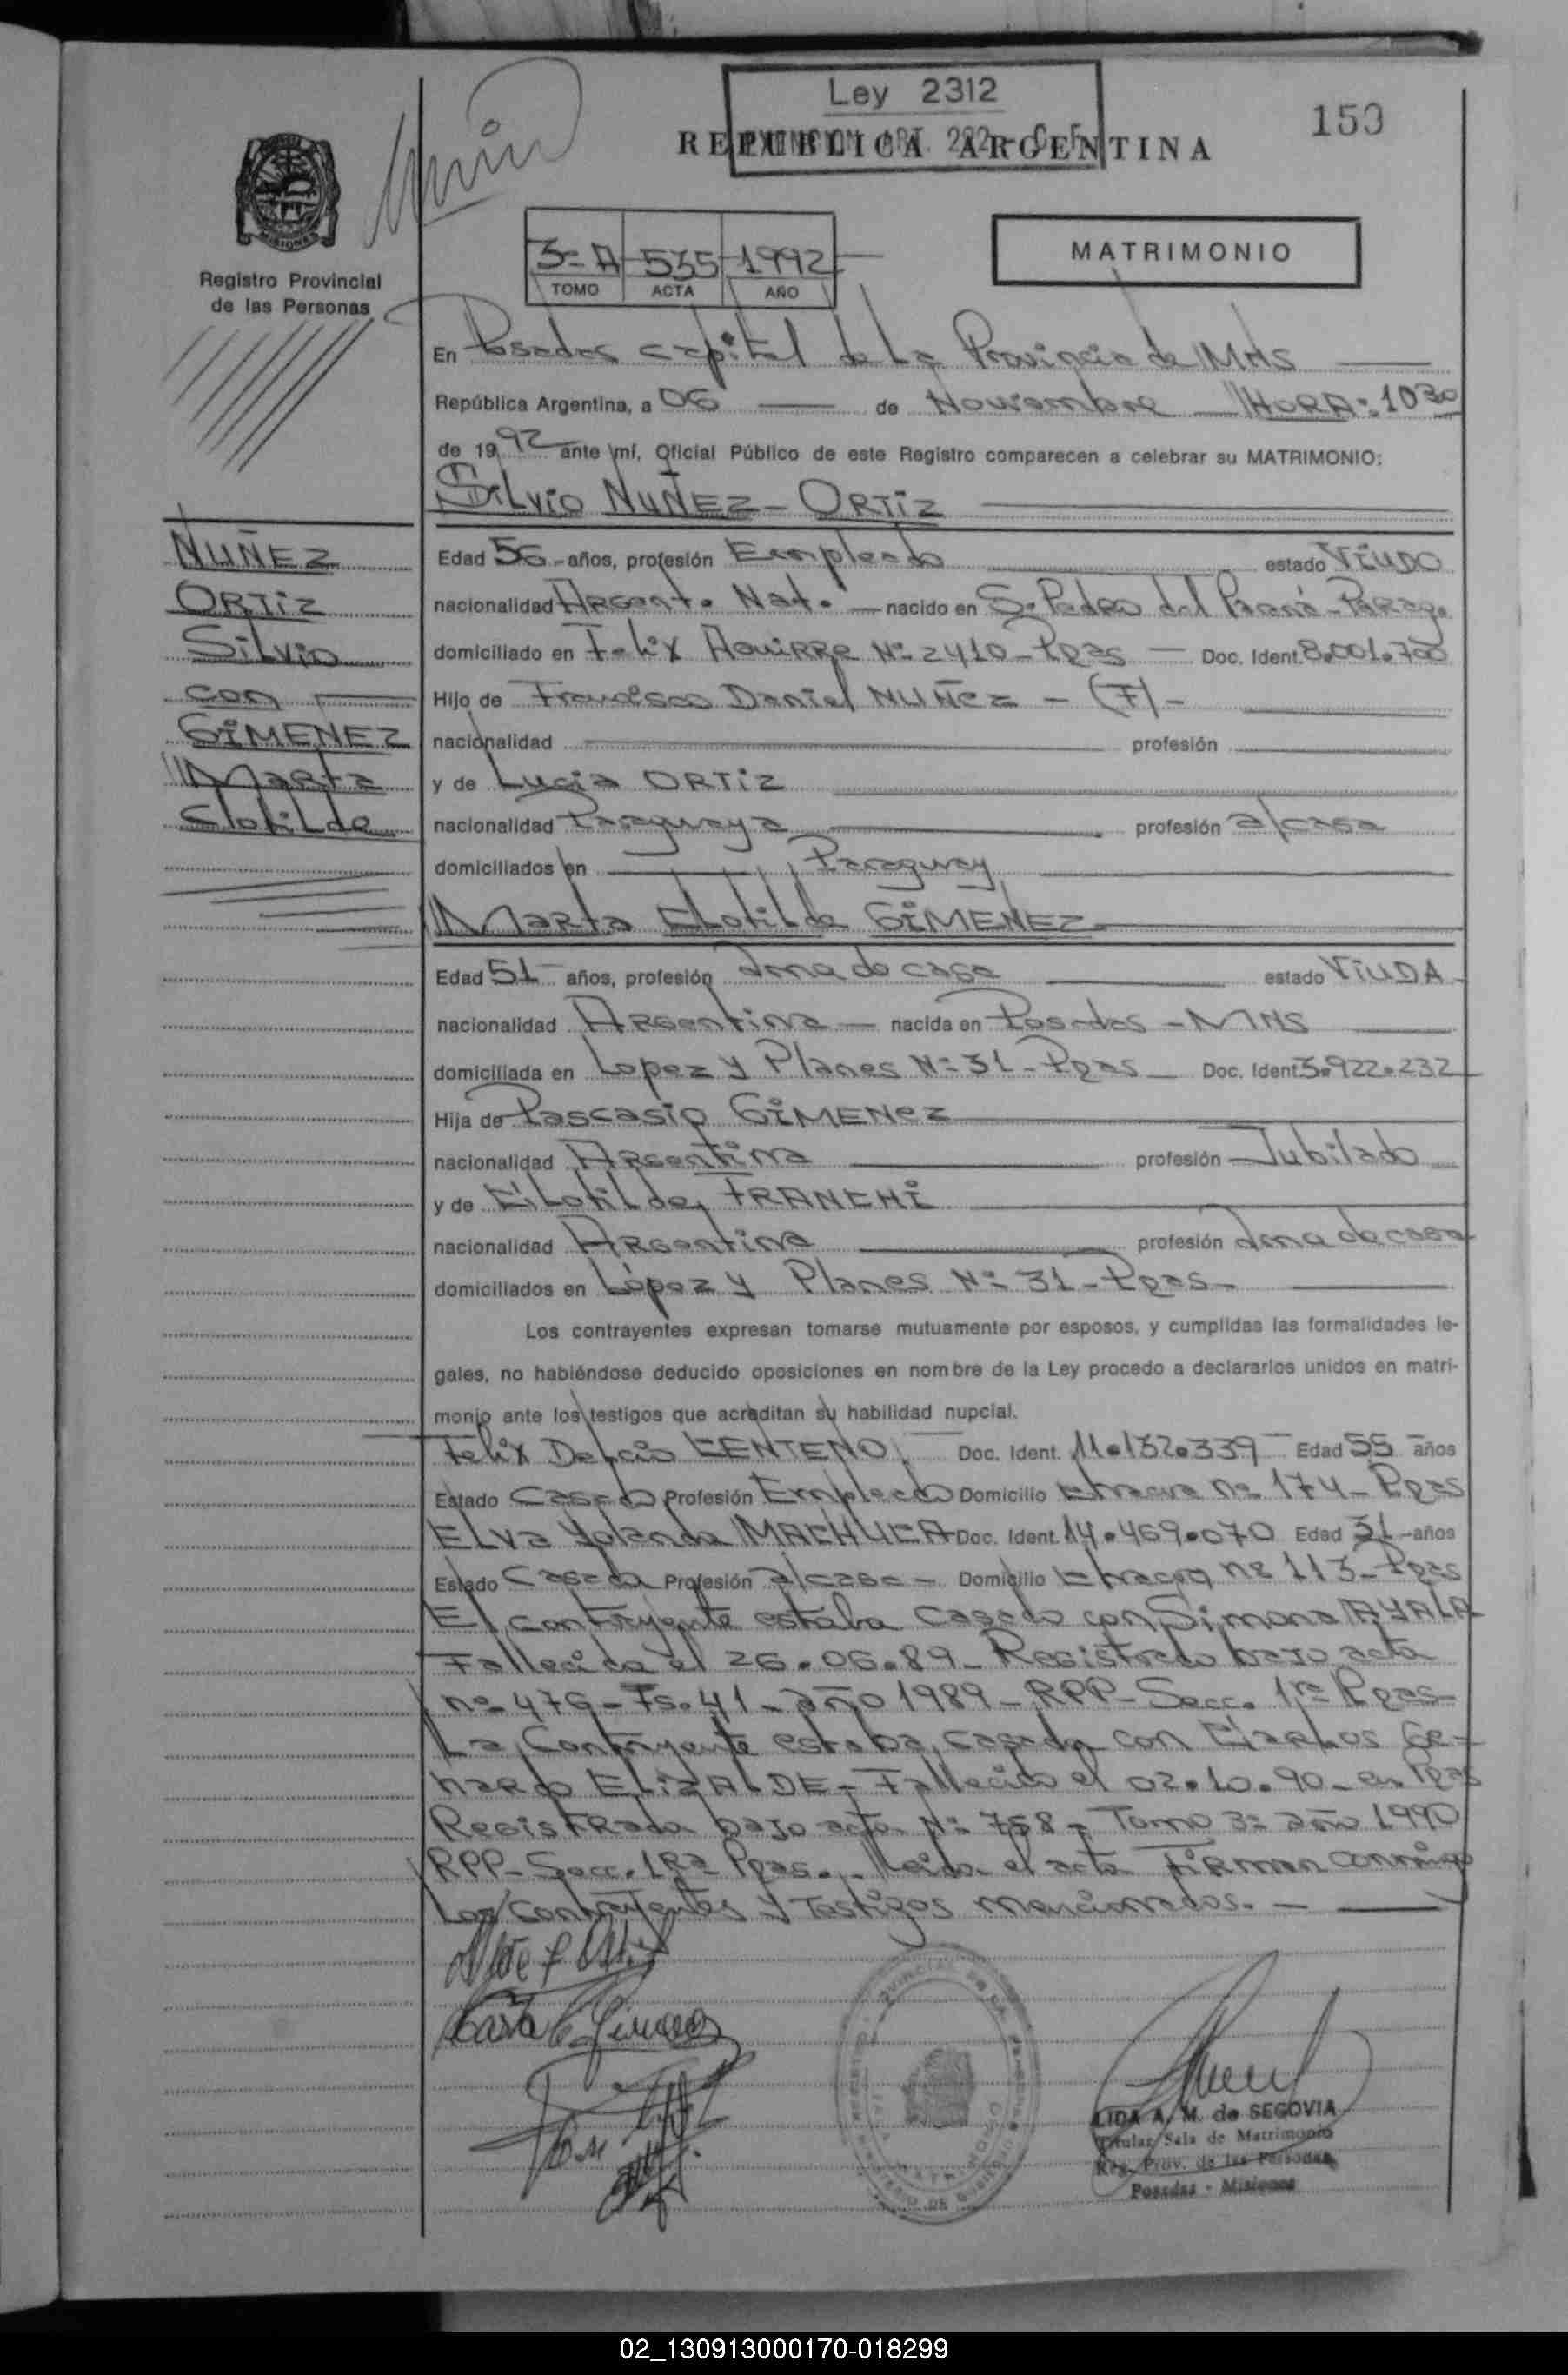 Ley 2312
REPUBLICA ARGENTINA
150
MISIONES
Registro Provincial
de las Personas
3º A 535 1992
TOMO ACTA AÑO
MATRIMONIO
En Posadas capital de La Provincia de Mns
República Argentina, a 06 de Noviembre HORA: 10 30
de 19 92 ante mí, Oficial Público de este Registro comparecen a celebrar su MATRIMONIO:
SiLvio NUÑEZ - ORTiz
NUÑEZ
ORTiz
SiLvio
con
GiMENEZ
Marta
Clotilde
Edad 56 - años, profesión Empleado estado ViUDO
nacionalidad Argent. Nat. nacido en S. Pedro del Paraná - Parag.
domiciliado en Felix Aguirre Nº 2410 - Pgas - Doc. Ident. 8.001.700
Hijo de Francisco Daniel NUÑez - (F) -
nacionalidad profesión
y de Lucia ORTiz
nacionalidad Paraguaya profesión a/casa
domiciliados en Paraguay
Marta Clotilde GiMENEZ
Edad 51 años, profesión Ama de casa estado ViUDA
nacionalidad Argentina nacida en Posadas - MNS
domiciliada en Lopez y Planes Nº 31 - Pgas Doc. Ident. 3.922.232
Hija de Pascasio GiMENez
nacionalidad Argentina profesión Jubilado
y de CLotilde FRANCHi
nacionalidad Argentina profesión Ama de casa
domiciliados en López y Planes Nº 31 - Pgas -
Los contrayentes expresan tomarse mutuamente por esposos, y cumplidas las formalidades le-
gales, no habiéndose deducido oposiciones en nombre de la Ley procedo a declararlos unidos en matri-
monio ante los testigos que acreditan su habilidad nupcial.
Felix Delcio CENTENO Doc. Ident. 11.132.339 Edad 55 años
Estado Casado Profesión Empleado Domicilio nº 174 - Pgas
ELva Yolanda MACHUCA Doc. Ident. 14.469.070 Edad 31 - años
Estado Casada Profesión a/casa - Domicilio nº 113 - Pgas
El contrayente estaba casado con Simona AYALA
Fallecida el 26.06.89 - Registrado bajo acta
nº 476 - Fs. 41 - año 1989 - RPP - Secc. 1ra Pgas
La Contrayente estaba casada con Carlos Ge-
nardo ELizALDE - Fallecido el 02.10.90 - en Pgas
Registrada bajo acta Nº 758 - Tomo 3º año 1990
RPP - Secc. 1Ra Pgas. - Leida el acta Firman conmigo
Los Contrayentes y Testigos mencionados. -
LIDA A. M. de SEGOVIA
Titular Sala de Matrimonio
Reg. Prov. de las Personas
Posadas - Misiones
02_130913000170-018299